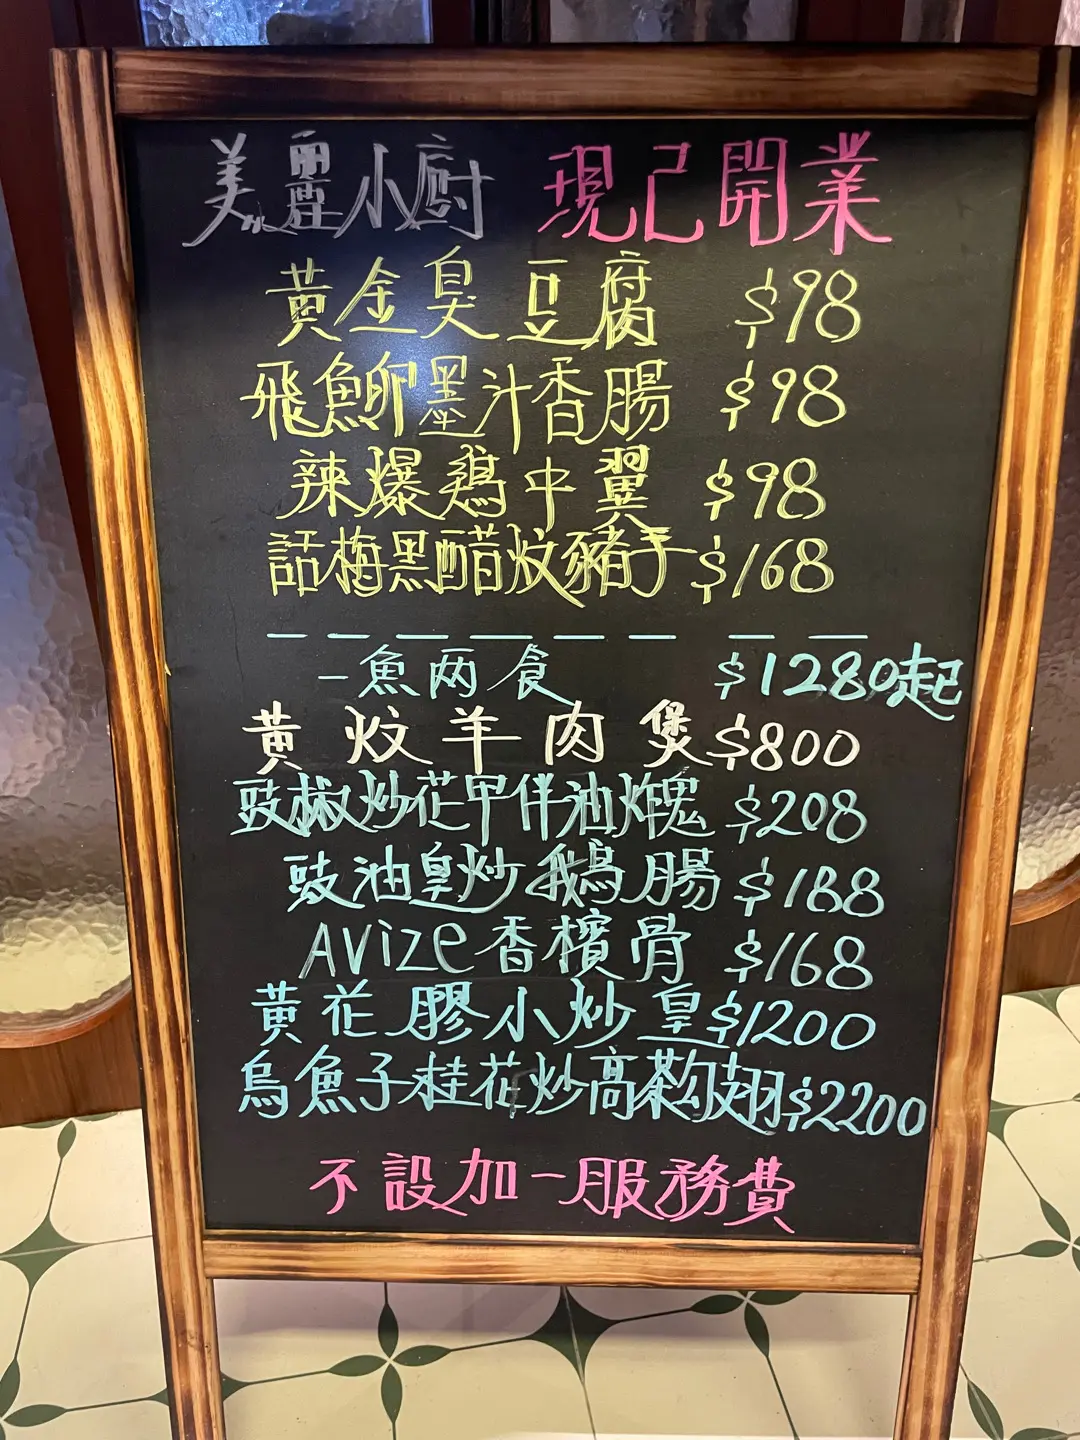 美 小廚 現已開業
黃金臭豆腐 $98
飛魚卵墨汁香腸 $98
辣爆鷄中翼 $98
話梅黑醋炆豬手 $168
一魚两食 $1280起
黃炆羊肉煲 $800
豉椒炒花甲伴油炸 $208
豉油皇炒鵝腸 $188
Avize香檳骨 $168
黃花膠小炒皇 $1200
烏魚子桂花炒高 翅 $2200
不設加一服務費